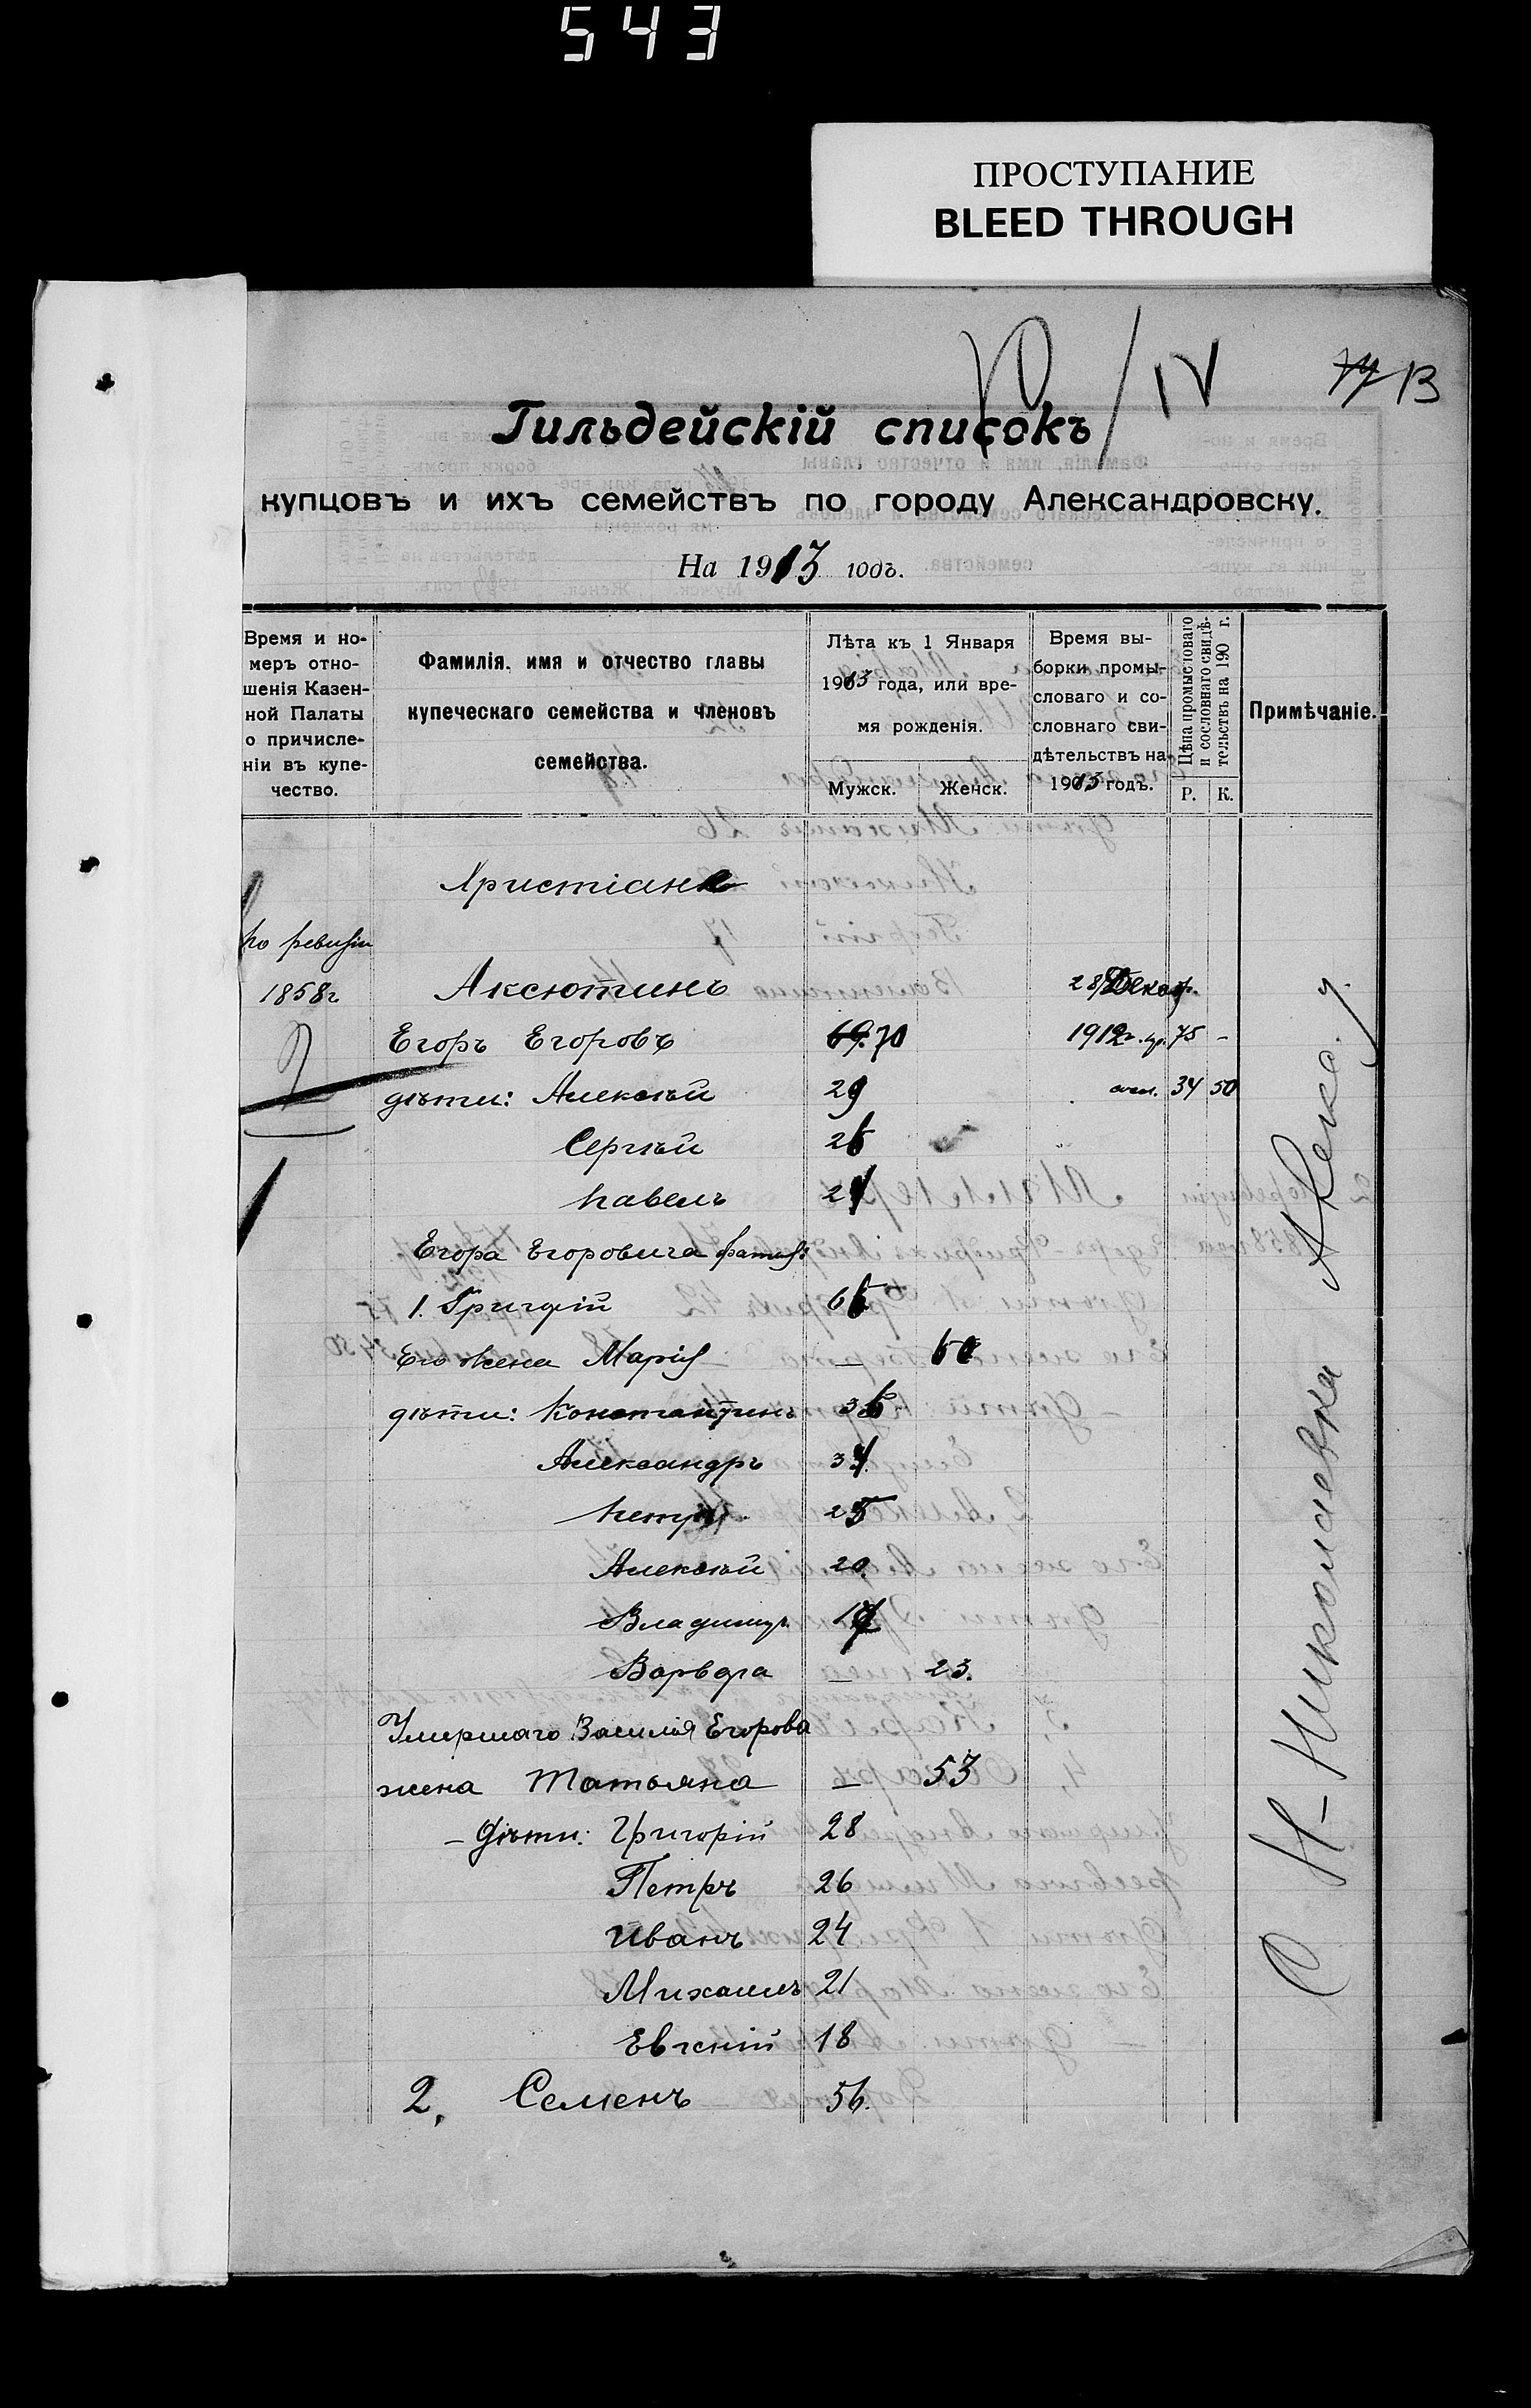 543
ПРОСТУПАНИЕ
BLEED THROUGH
IV
77 13
Гильдейскій списокъ
купцовъ и ихъ семействъ по городу Александровску.
На 1913 годъ.
Время и но-
меръ отно-
шенія Казен-
ной Палаты
о причисле-
ніи въ купе-
чество.
Фамилія. имя и отчество главы
купеческаго семейства и членовъ
семейства.
Лѣта къ 1 Января
1913 года, или вре-
мя рожденія.
Мужск. Женск.
Время вы-
борки промы-
словаго и со-
словнаго сви-
дѣтельствъ на
1913 годъ.
Цѣна промысловаго
и сословнаго свидѣ-
тельствъ на 190 г.
Р. К.
Примѣчаніе.
Христіане
по ревизіи
1858г Аксютинъ 28 Декаб.
Егоръ Егоровъ 69. 70 1912г. 75 -
дѣти: Алексѣй 29 34 50
Сергѣй 26
Павелъ
Егора Егоровича
1. Григорій
Его жена Марія —
дѣти: Константинъ
Александръ
Петръ 25
Алексѣй 20.
Владимиръ
Варвара — 23.
Умершаго Василія Егорова
жена Татьяна — 53
— Дѣти: Григорій 28
Петръ 26
Иванъ 24
Михаилъ 21
Евгеній 18
2. Семенъ 56.
С Н-Николаевка Алекс. у.